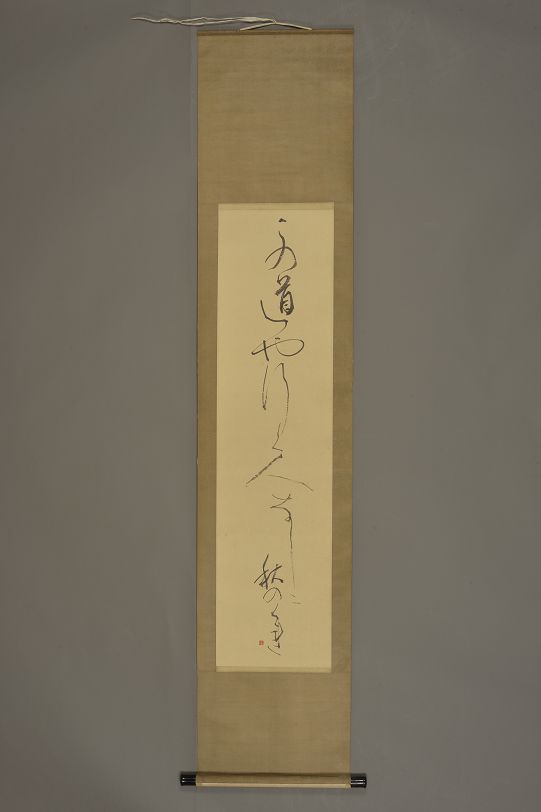 この道や行人なしに秋の暮